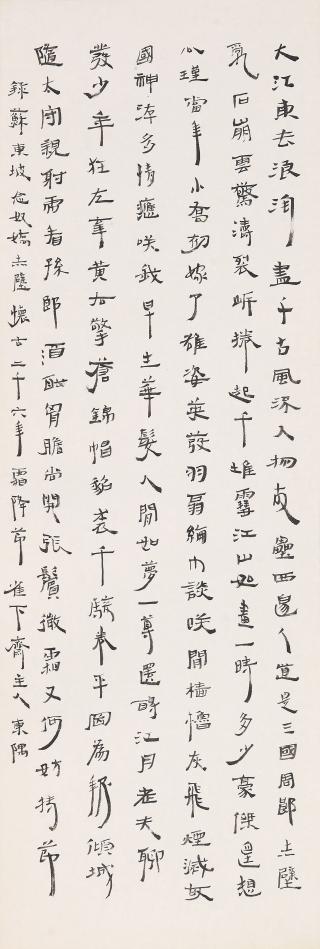 大江東去浪淘盡千古風流人物故壘西邊人道是三國周郎赤壁
亂石崩雲驚濤裂岸捲起千堆雪江山如畫一時多少豪傑遙想
公瑾當年小喬初嫁了雄姿英發羽扇綸巾談笑間檣櫓灰飛煙滅故
國神遊多情應笑我早生華髮人間如夢一尊還酹江月老夫聊
發少年狂左牽黃右擎蒼錦帽貂裘千騎卷平岡為報傾城
隨太守親射虎看孫郎酒酣胸膽尚開張鬢微霜又何妨持節
錄蘇東坡念奴嬌赤壁懷古二千六年霜降節雀下齋主人東隅